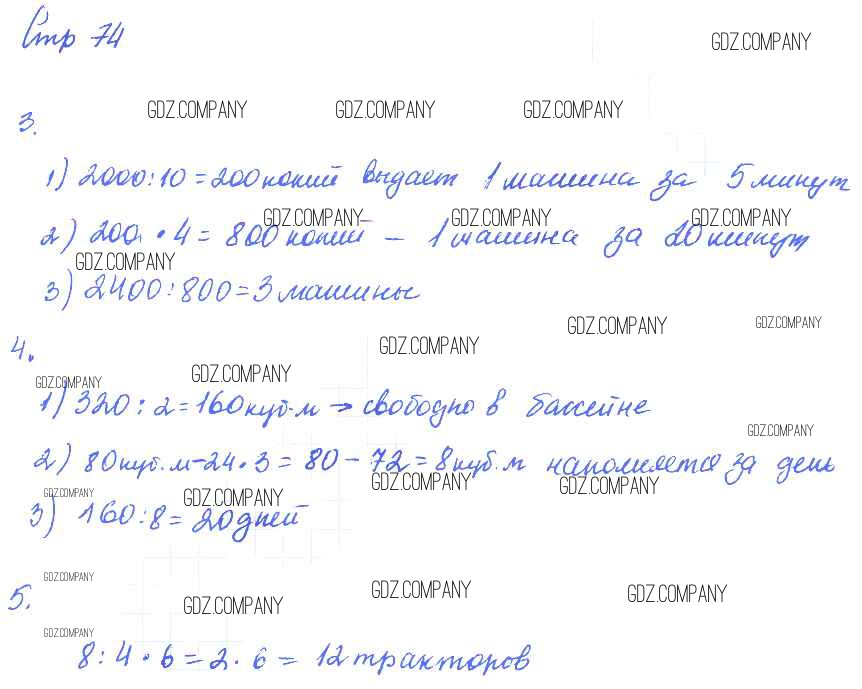 Стр 74
GDZ.COMPANY
GDZ.COMPANY GDZ.COMPANY GDZ.COMPANY
3.
1) 2000:10=200 копий выдает 1 машина за 5 минут
GDZ.COMPANY GDZ.COMPANY GDZ.COMPANY
2) 200 · 4 = 800 копий – 1 машина за 20 минут
GDZ.COMPANY
3) 2400:800=3 машины
GDZ.COMPANY GDZ.COMPANY
4.
GDZ.COMPANY
GDZ.COMPANY GDZ.COMPANY
1) 320 : 2 = 160 куб.м → свободно в бассейне
GDZ.COMPANY
2) 80 куб.м-24·3 = 80 – 72 = 8 куб.м наполняется за день
GDZ.COMPANY GDZ.COMPANY GDZ.COMPANY GDZ.COMPANY
3) 160:8= 20 дней
GDZ.COMPANY
5.
GDZ.COMPANY GDZ.COMPANY GDZ.COMPANY
GDZ.COMPANY
8:4·6=2·6= 12 тракторов